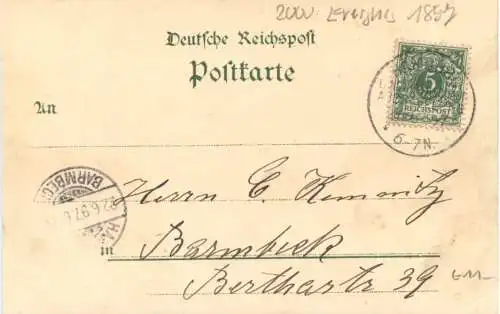 2000.- Ereignis 1897
Deutsche Reichspost
Postkarte
An
5
REICHSPOST
6-7N.
BARMBECK
22.6.97
HA
Herrn C. Kemnitz
in Barmbeck
Berthastr 39